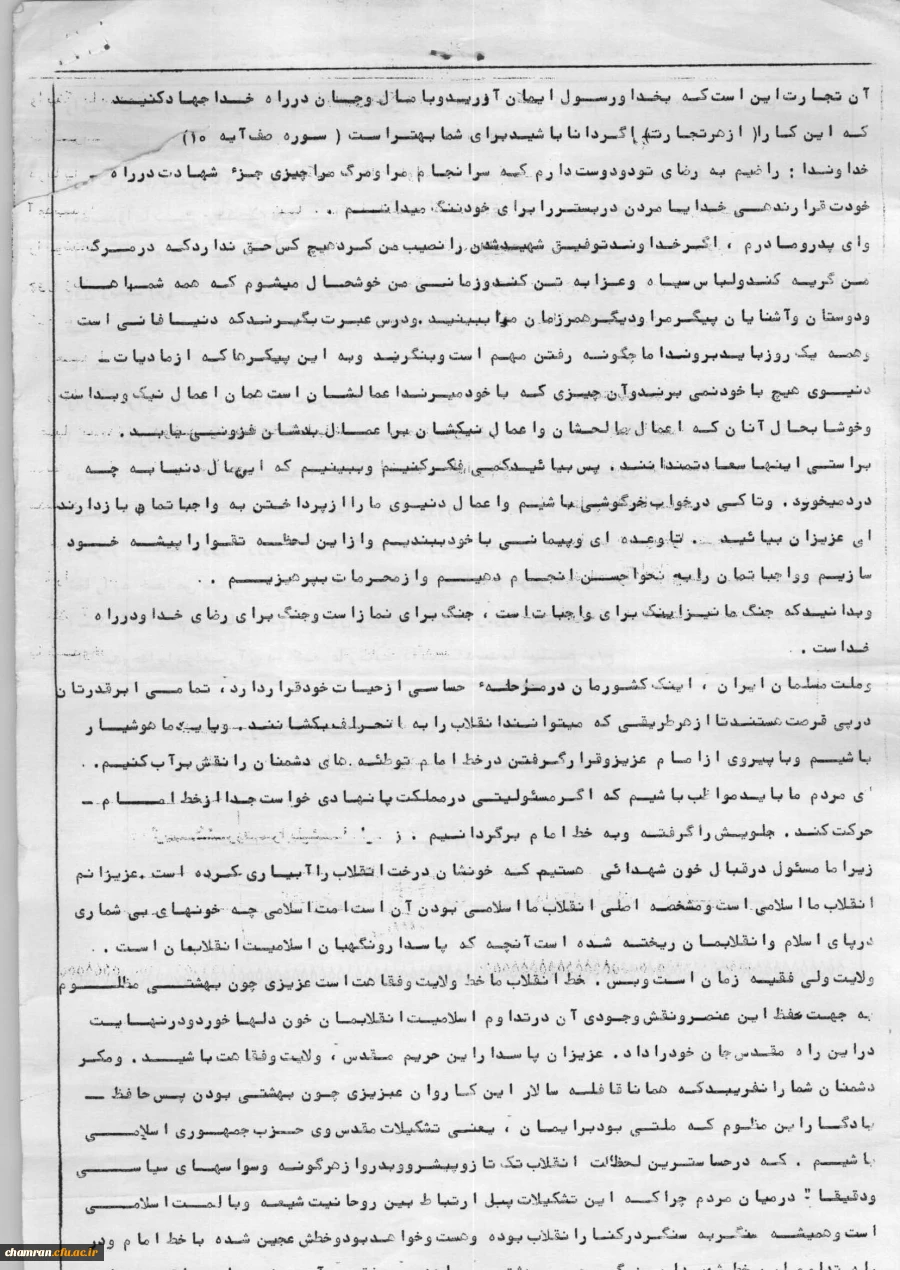 آن تجارت این است که بخدا ورسول ایمان آورید وبا مال وجان در راه خدا جهاد کنید
که این کار ( ازهرتجارت ) اگر دانا باشید برای شما بهتر است ( سوره صف آیه ۱۰)
خداوندا : راضیم به رضای تو ودوست دارم که سرانجام مرا ومرگ مرا چیزی جزء شهادت در راه ـ
خودت قرار ندهی خدایا مردن در بستر را برای خود ننگ میدانم .
وای پدر ومادرم ، اگر خداوند توفیق شهید شدن را نصیب من کرد هیچ کس حق ندارد که در مرگ
من گریه کند ولباس سیاه وعزا به تن کند وزمانی من خوشحال میشوم که همه شماها
ودوستان وآشنایان پیگر مرا ودیگر همرزمان مرا ببینید .ودرس عبرت بگیرند که دنیا فانی است
وهمه یک روز باید بروند اما چگونه رفتن مهم است وبنگرند وبه این پیکرها که ازمادیات ـ
دنیوی هیچ با خود نمی برند وآن چیزی که با خود میبرند اعمالشان است همان اعمال نیک وبد است
وخوشا بحال آنان که اعمال صالحشان واعمال نیکشان بر اعمال بدشان فزونی یابد .
براستی اینها سعادتمندانند . پس بیائید کمی فکر کنیم وببینیم که این مال دنیا به چه
درد میخورد . وتاکی در خواب خرگوشی باشیم واعمال دنیوی ما را از پرداختن به واجباتمان باز دارند
ای عزیزان بیائید . تا وعده ای وپیمانی با خود ببندیم واز این لحظه تقوا را پیشه خود
سازیم وواجباتمان را به نحواحسن انجام دهیم واز محرمات بپرهیزیم .
وبدانید که جنگ ما نیز اینک برای واجبات است ، جنگ برای نماز است وجنگ برای رضای خدا ودر راه
خداست .
وملت مسلمان ایران ، اینک کشورمان در مرحلهٔ حساسی از حیات خود قرار دارد ، تمامی ابرقدرتان
در پی فرصت هستند تا ازهر طریقی که میتوانند انقلاب را به انحراف بکشانند . وباید ما هوشیار
باشیم وبا پیروی از امام عزیز وقرار گرفتن در خط امام توطئه های دشمنان را نقش برآب کنیم .
ای مردم ما باید مواظب باشیم که اگر مسئولیتی در مملکت پا نهادی خواست جدا از خط امام ـ
حرکت کند . جلویش را گرفته وبه خط امام برگردانیم .
زیرا ما مسئول در قبال خون شهدائی هستیم که خونشان درخت انقلاب را آبیاری کرده است .عزیزانم
انقلاب ما اسلامی است ومشخصه اصلی انقلاب ما اسلامی بودن آن است امت اسلامی چه خونهای بی شماری
در پای اسلام وانقلابمان ریخته شده است آنچه که پاسدار ونگهبان اسلامیت انقلابمان است .
ولایت ولی فقیه زمان است وبس . خط انقلاب ما خط ولایت وفقاهت است عزیزی چون بهشتی مظلوم
به جهت حفظ این عنصر ونقش وجودی آن در تداوم اسلامیت انقلابمان خون دلها خورد ودرنهایت
در این راه مقدس جان خود را داد . عزیزان پاسدار این حریم مقدس ، ولایت وفقاهت باشید . ومکر
دشمنان شما را نفریبد که همانا قافله سالار این کاروان عزیزی چون بهشتی بودن پس حافظ ـ
یادگار این مظلوم که ملتی بود برایمان ، یعنی تشکیلات مقدس وی حزب جمهوری اسلامی
باشیم . که در حساسترین لحظات انقلاب تک تاز وپیشرو وبدور ازهرگونه وسواسهای سیاسی
ودقیقا" در میان مردم چرا که این تشکیلات پل ارتباط بین روحانیت شیعه وبا امت اسلامی
است وهمیشه سنگر به سنگر در کنار انقلاب بوده وهست وخواهد بود وخطش عجین شده با خط امام ودر
chamran.cfu.ac.ir